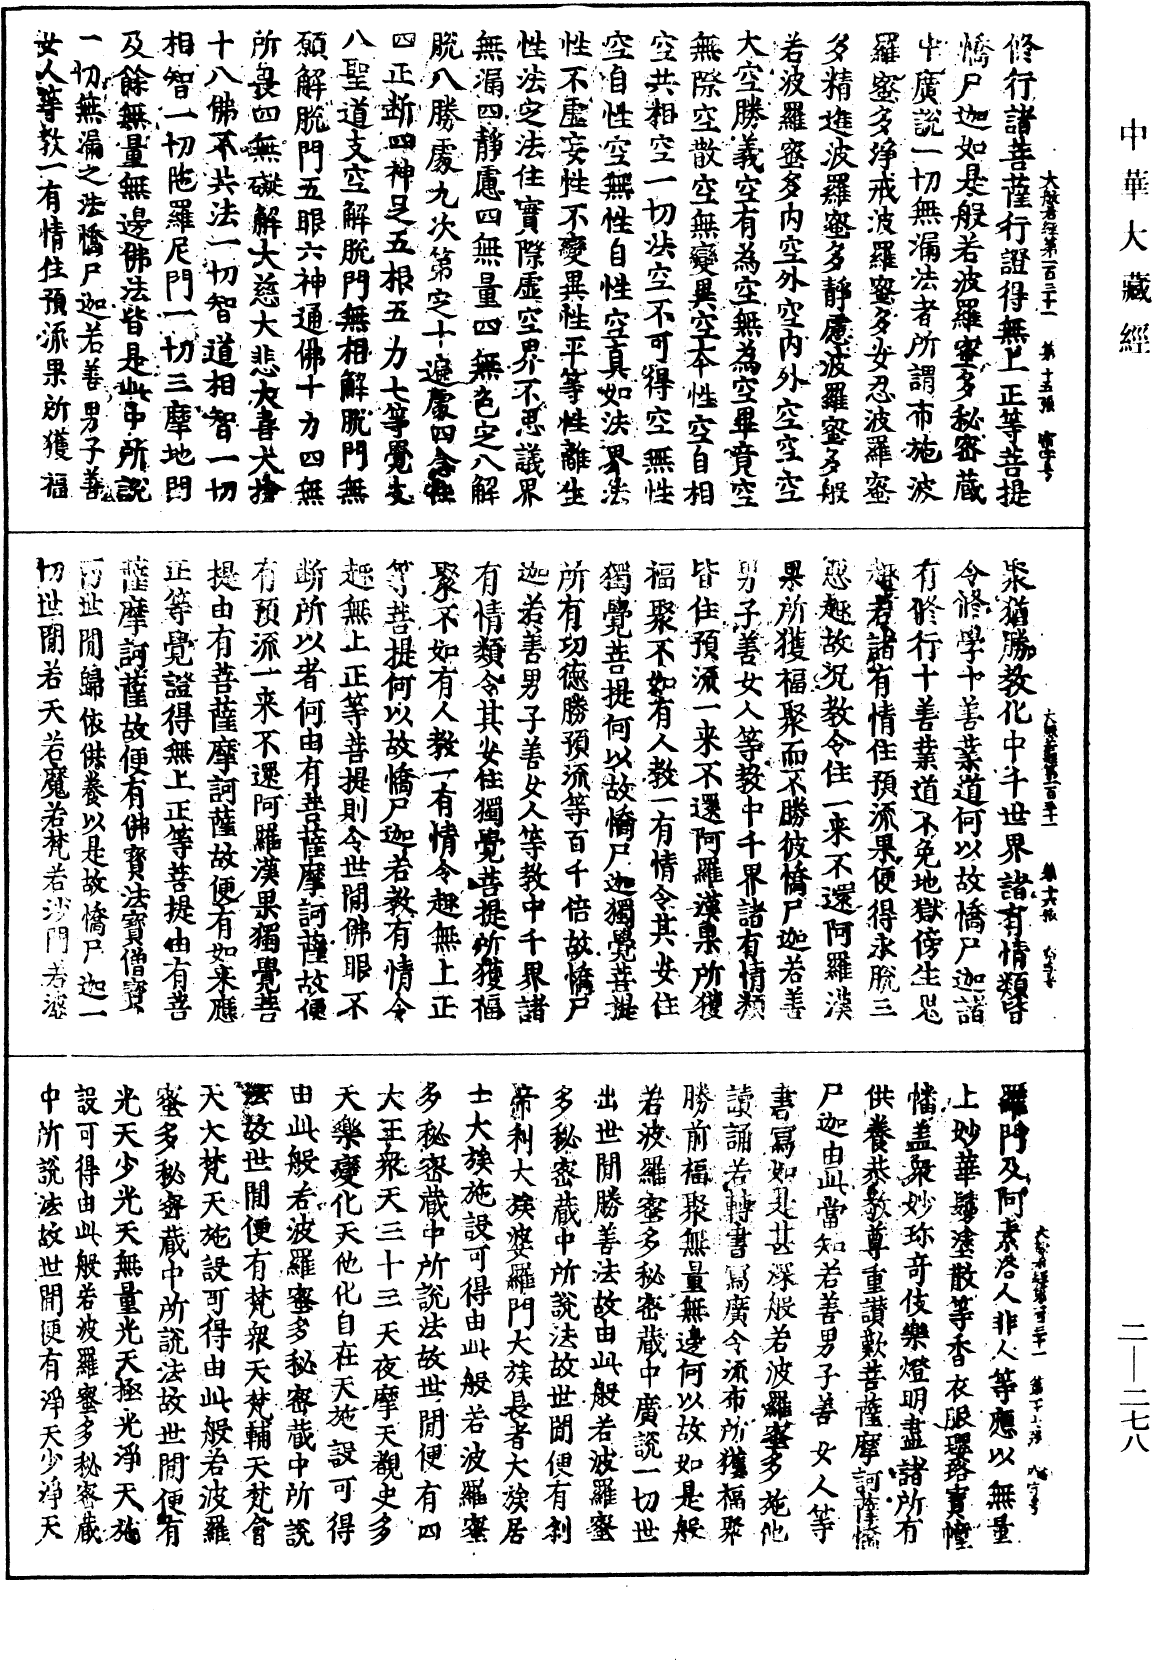 中華大藏經
大般若經第一百三十一 第十五張
修行諸菩薩行證得無上正等菩提
憍尸迦如是般若波羅蜜多秘密藏
中廣說一切無漏法者所謂布施波
羅蜜多淨戒波羅蜜多安忍波羅蜜
多精進波羅蜜多靜慮波羅蜜多般
若波羅蜜多內空外空內外空空空
大空勝義空有為空無為空畢竟空
無際空散空無變異空本性空自相
空共相空一切法空不可得空無性
空自性空無性自性空真如法界法
性不虛妄性不變異性平等性離生
性法定法住實際虛空界不思議界
無漏四靜慮四無量四無色定八解
脫八勝處九次第定十遍處四念住
四正斷四神足五根五力七等覺支
八聖道支空解脫門無相解脫門無
願解脫門五眼六神通佛十力四無
所畏四無礙解大慈大悲大喜大捨
十八佛不共法一切智道相智一切
相智一切陁羅尼門一切三摩地門
及餘無量無邊佛法皆是此中所說
一切無漏之法憍尸迦若善男子善
女人等教一有情住預流果所獲福
大般若經第一百三十一 第十六張
聚猶勝教化中千世界諸有情類皆
令修學十善業道何以故憍尸迦諸
有修行十善業道不免地獄傍生鬼
趣若諸有情住預流果便得永脫三
惡趣故況教令住一來不還阿羅漢
果所獲福聚而不勝彼憍尸迦若善
男子善女人等教中千界諸有情類
皆住預流一來不還阿羅漢果所獲
福聚不如有人教一有情令其安住
獨覺菩提何以故憍尸迦獨覺菩提
所有功德勝預流等百千倍故憍尸
迦若善男子善女人等教中千界諸
有情類令其安住獨覺菩提所獲福
聚不如有人教一有情令趣無上正
等菩提何以故憍尸迦若教有情令
趣無上正等菩提則令世間佛眼不
斷所以者何由有菩薩摩訶薩故便
有預流一来不還阿羅漢果獨覺菩
提由有菩薩摩訶薩故便有如来應
正等覺證得無上正等菩提由有菩
薩摩訶薩故便有佛寶法寶僧寶一
切世間歸依供養以是故憍尸迦一
切世間若天若魔若梵若沙門若婆
大般若經第一百三十一
羅門及阿素洛人非人等應以無量
上妙華鬘塗散等香衣服瓔珞寶幢
幡盖衆妙珍奇伎樂燈明盡諸所有
供養恭敬尊重讚歎菩薩摩訶薩憍
尸迦由此當知若善男子善女人等
書寫如是甚深般若波羅蜜多施他
讀誦若轉書寫廣令流布所獲福聚
勝前福聚無量無邊何以故如是般
若波羅蜜多秘密藏中廣說一切世
出世間勝善法故由此般若波羅蜜
多秘密藏中所說法故世間便有剎
帝利大族婆羅門大族長者大族居
士大族施設可得由此般若波羅蜜
多秘密藏中所說法故世間便有四
大王衆天三十三天夜摩天覩史多
天樂變化天他化自在天施設可得
由此般若波羅蜜多秘密藏中所說
法故世間便有梵衆天梵輔天梵會
天大梵天施設可得由此般若波羅
蜜多秘密藏中所說法故世間便有
光天少光天無量光天極光淨天施
設可得由此般若波羅蜜多秘密藏
中所說法故世間便有淨天少淨天
二—二七八